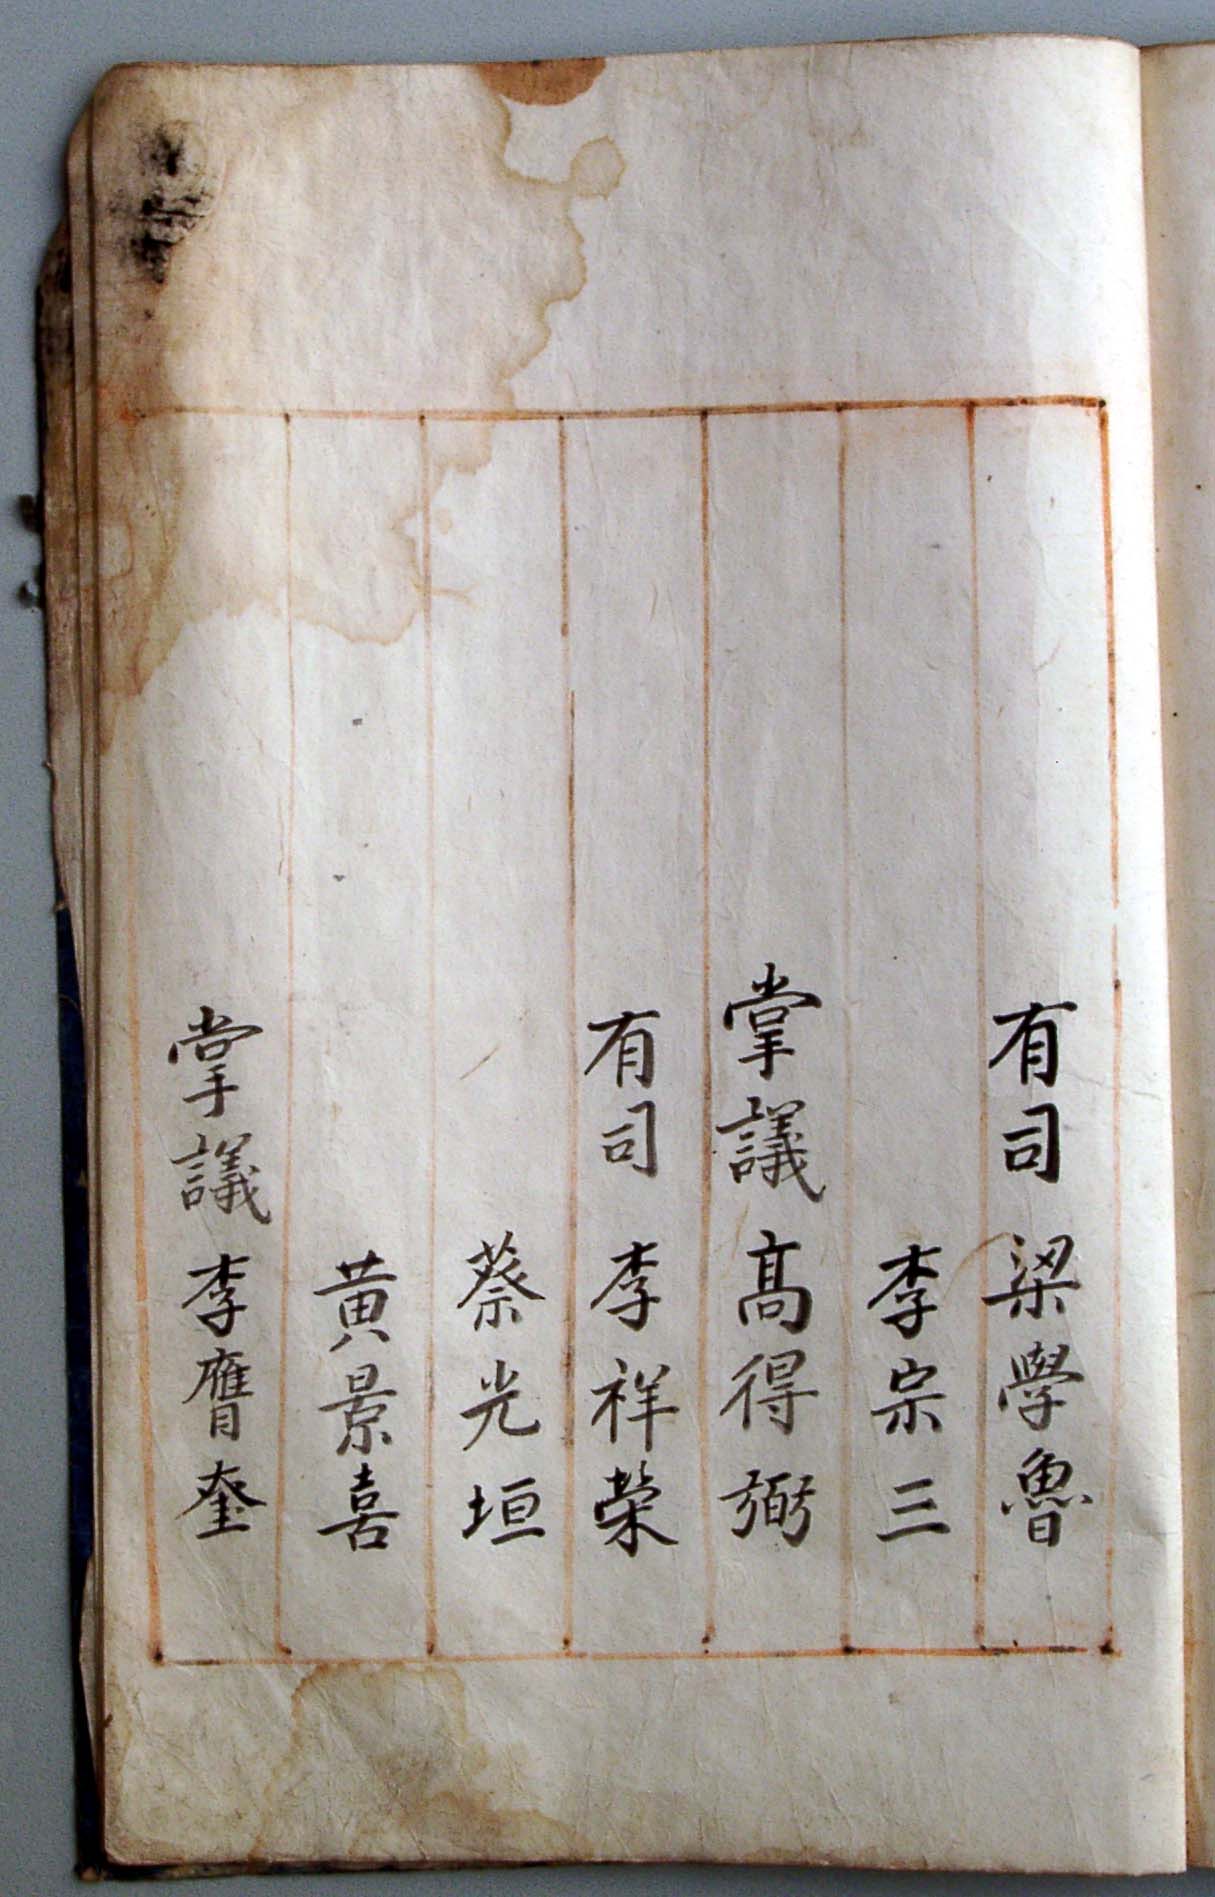 有司 梁學魯
李宗三
掌議 高得弼
有司 李祥榮
蔡光垣
黄景喜
掌議 李膺奎